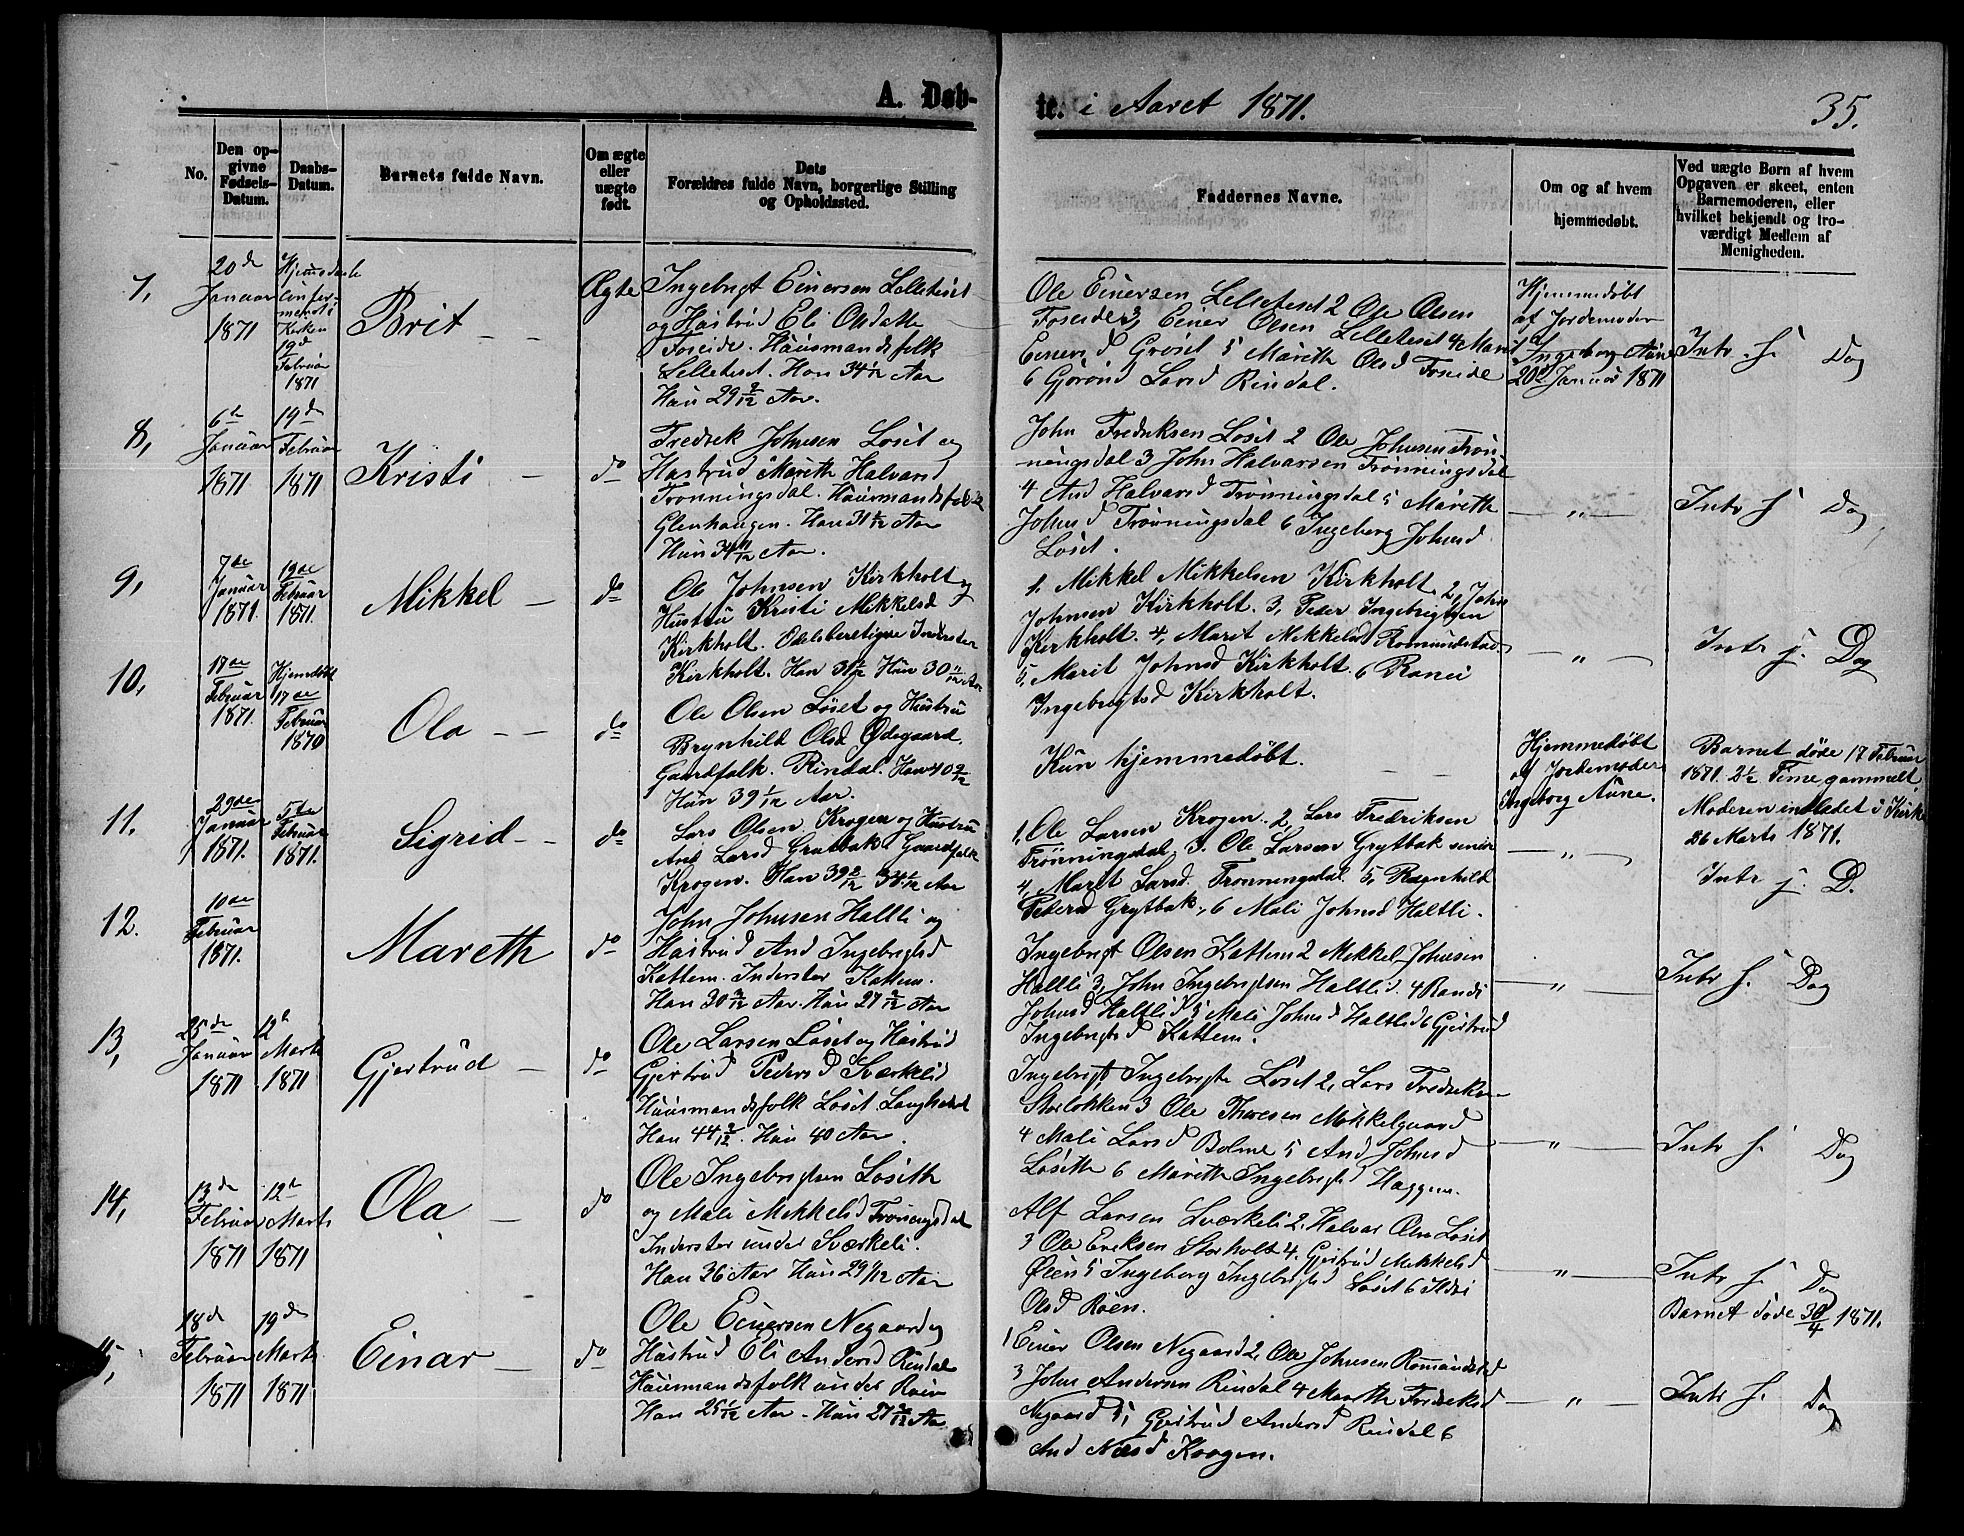 A. Døb-
te. i Aaret 1871.
35.
No.
Den op-
givne
Fødsels-
Datum.
Daabs-
Datum.
Barnets fulde Navn.
Om ægte
eller
uægte
født.
Dets
Forældres fulde Navn, borgerlige Stilling
og Opholdssted.
Faddernes Navne.
Om og af hvem
hjemmedøbt.
Ved uægte Børn af hvem
Opgaven er skeet, enten
Barnemoderen, eller
hvilket bekjendt og tro-
værdigt Medlem af
Menigheden.
7,
20de
Januar
1871
Kirken
19de
Februar
1871
Brit
Ægte
Ingebrigt Einersen Lilleteset
og Hustrud Eli Olsdatte
Foseide. Huusmandsfolk
Lilleteset. Han 34 1/12 Aar
Hun 29 2/12 Aar.
Ole Einersen Lilleteset 2 Ole Olsen
Foseide 3, Einer Olsen Lilleteset 4 Marit
Einersd Grøset 5 Mareth Olsd Foseide
6 Gjørond Larsd Rindal.
Hjemmedøbt
af Jordemoder
Ingeborg Aune
20de Januar 1871
Intr. f. Dag
8,
6te
Januar
1871
19de
Februar
1871
Kristi
do
Fredrek Johnsen Løset og
Hustrud Mareth Halvarsd
Trønningsdal. Huusmandsfolk
Glenhaugen. Han 31 Aar
Hun 34 11/12 Aar.
John Fredriksen Løset 2 Ole Johnsen Trøn-
ningsdal 3 John Halvarsen Trønningsdal
4 And Halvarsd Trønningsdal 5 Mareth
Johnsd Trønningsdal 6 Ingeberg Johnsd
Løset.
Intr f Dag
9,
7de
Januar
1871.
19de
Februar
1871.
Mikkel
do
Ole Johnsen Kirkholt og
Hustru Kristi Mikkelsd
Kirkholt. Odelsberetigve Inderster
Kirkholt. Han 31 Hun 30 11/12 Aar
1. Mikkel Mikkelsen Kirkholt. 2, John
Johnsen Kirkholt. 3, Peder Ingebrigtsen
Kirkholt. 4, Marit Mikkelsd Romundstad
5, Marit Johnsd Kirkholt. 6 Ranei
Ingebrigtsd Kirkholt.
Intr j. Dag
10,
17de
Februar
1871.
Hjemdøbt
17de
Februar
1870
Ola
do
Ole Olsen Løset og Hustru
Brynhild Olsd Ødegaard.
Gaardfolk. Rindal. Han 40 2/12
Hun 39 1/12 Aar.
Kun hjemmedøbt.
Hjemmedøbt
af Jordemoder
Ingeborg Aune.
Barnet døde 17 Februar
1871. 2½ Time gammelt.
Moderen indledet i Kirke
26 Marts 1871.
11.
29de
Januar
1871.
5te
Februar
1871.
Sigrid
do
Lars Olsen Krogen og Hustru
Ane Larsd Grytbak Gaardfolk
Krogen. Han 39 2/12 38 Aar
1, Ole Larsen Krogen. 2 Lars Fredriksen
Trønningdal 3. Ole Larsen Grytbak senior
4, Marit Larsd. Tronningsdal. 5, Ragnhild
Pedersd Grytbak, 6 Mali Johnsd Haltli.
Intr j. D.
12.
10de
Februar
1871.
Mareth
do
John Johnsen Haltli og
Hustrud And Ingebrigtsd
Kattem. Inderster Kattem.
Han 30 Aar. Hun 27 Aar
Ingebrigt Olsen Kattem 2 Mekkel Johnsen
Haltli 3, John Ingebrigtsen Haltlid. 4 Randi
Johnsd Haltlid 5 Mali Johnsd Haltlid 6 Gjertrud
Ingebrigtsd Kattem.
Intr f. Dag
13,
25de
Januar
1871
12te
Marts
1871
Gjertrud
do
Ole Larsen Løset og Hustrud
Gjertrud Pedersd Sværkeli
Huusmandsfolk Løset
Han 44 2/12. Hun 40 Aar.
Ingebrigt Ingebrigts Løset 2, Lars Fredrekse
Storløkken 3 Ole Thoresen Mikkelgaard
4 Mali Larsd Bolme 5 And Johnsd
Løseth 6 Mareth Ingebrigtsd Haggen.
Intr f. Dag
14,
13de
Februar
1871
12te
Marts
1871
Ola
do
Ole Ingebrigtsen Løseth
og Mali Mekkelsd Trøningsdal
Inderster under Sværkeli.
Han 36 Aar Hun 29 1/12 Aar
Alf Larsen Sværkeli 2, Halvar Olsen Løset
3 Ole Eriksen Storholt 4. Gjertrud Mekkelsd
Øien 5 Ingeborg Ingebrigtsd Løset 6 Ildri
Olsd Røen.
Intr f. Dag
Barnet døde 30/4 1871.
15,
18de
Februar
1871
19de
Marts
1871
Einar
do
Ole Einersen Negaard og
Hustrud Eli Andersd Rindal
Huusmandsfolk under Røen
Han 25 1/12 Aar. Hun 27 Aar
1 Einer Olsen Negaard 2, Ole Johnsen Romundstad
3 John Andersen Rindal 4 Mareth Fredreksd
Negaard 5, Gjertrud Andersd Rindal 6
And Nilsd Krogen.
Intr f. Dag